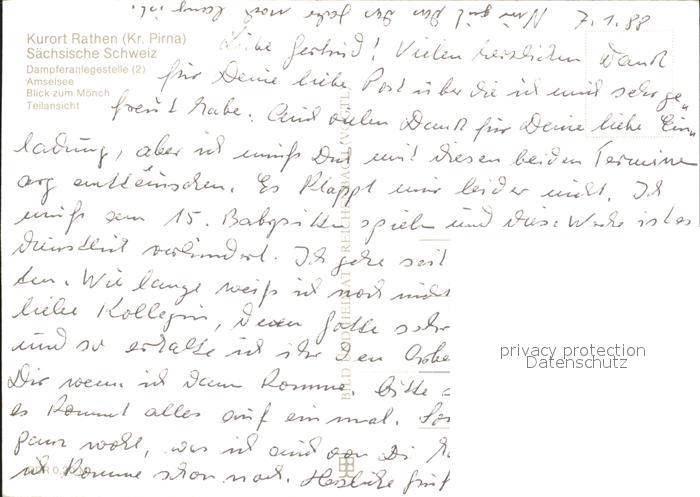 7.1.88
Kurort Rathen (Kr. Pirna)
Sächsische Schweiz
Dampferanlegestelle (2)
Amselsee
Blick zum Mönch
Teilansicht
Liebe Gertrud! Vielen herzlichen Dank
für Deine liebe Post über die ich mich sehr ge-
freut habe. Und vielen Dank für Deine liebe Ein-
ladung, aber ich muß Dich mit diesen beiden Terminen
arg enttäuschen. Es klappt mir leider nicht. Ich
muß am 15. Babysitten spielen und diese Woche ist es
dienstlich verhindert. Ich gehe seit
ten. Wie lange weiß ich noch nicht
liebe Kollegin, deren Gatte sehr
und so erhalte ich ihr den
Dir wenn ich dann komme. Bitte
es kommt alles auf einmal.
ganz wohl, was ich auch von Dir
ich komme schon noch. Herzliche
BILD UND HEIMAT REICHENBACH (VOGTL)
privacy protection
Datenschutz